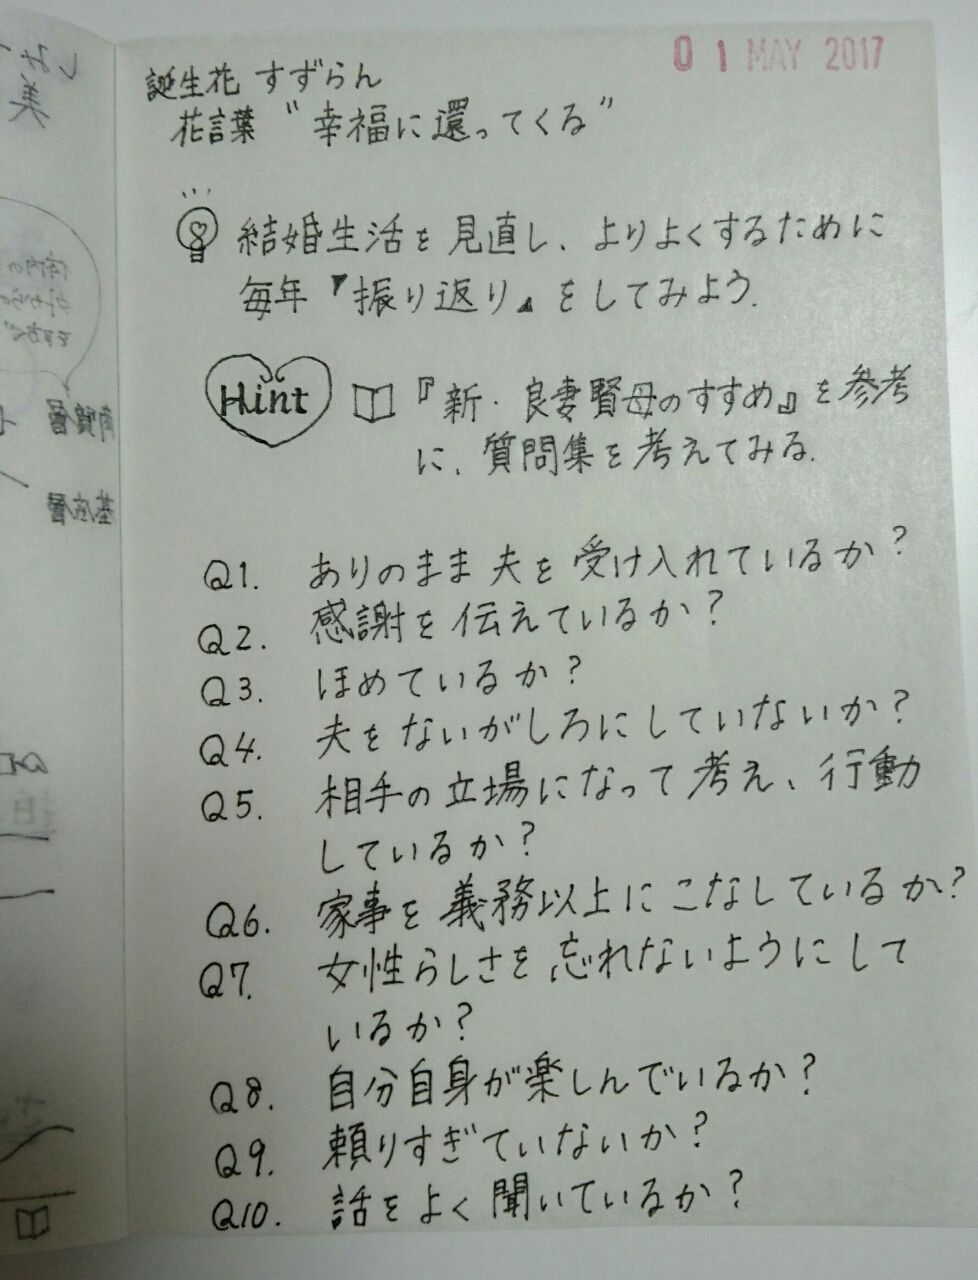 01 MAY 2017
誕生花 すずらん
花言葉 “幸福に還ってくる”
結婚生活を見直し、よりよくするために
毎年『振り返り』をしてみよう.
Hint 『新・良妻賢母のすすめ』を参考
に、質問集を考えてみる.
Q1. ありのまま夫を受け入れているか?
Q2. 感謝を伝えているか?
Q3. ほめているか?
Q4. 夫をないがしろにしていないか?
Q5. 相手の立場になって考え、行動
しているか?
Q6. 家事を義務以上にこなしているか?
Q7. 女性らしさを忘れないようにして
いるか?
Q8. 自分自身が楽しんでいるか?
Q9. 頼りすぎていないか?
Q10. 話をよく聞いているか?